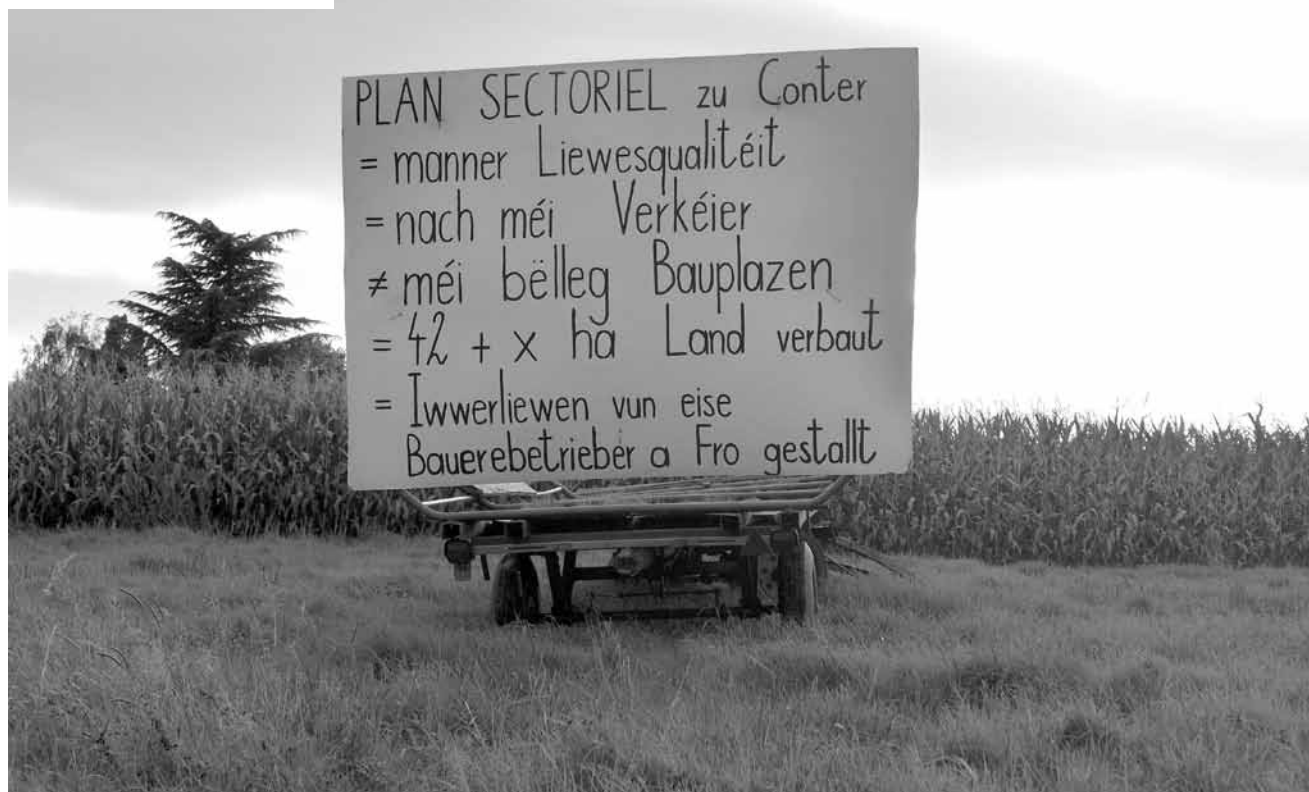 PLAN SECTORIEL zu Conter
= manner Liewesqualitéit
= nach méi Verkéier
≠ méi bëlleg Bauplazen
= 42 + x ha Land verbaut
= Iwwerliewen vun eise
Bauerebetrieber a Fro gestallt